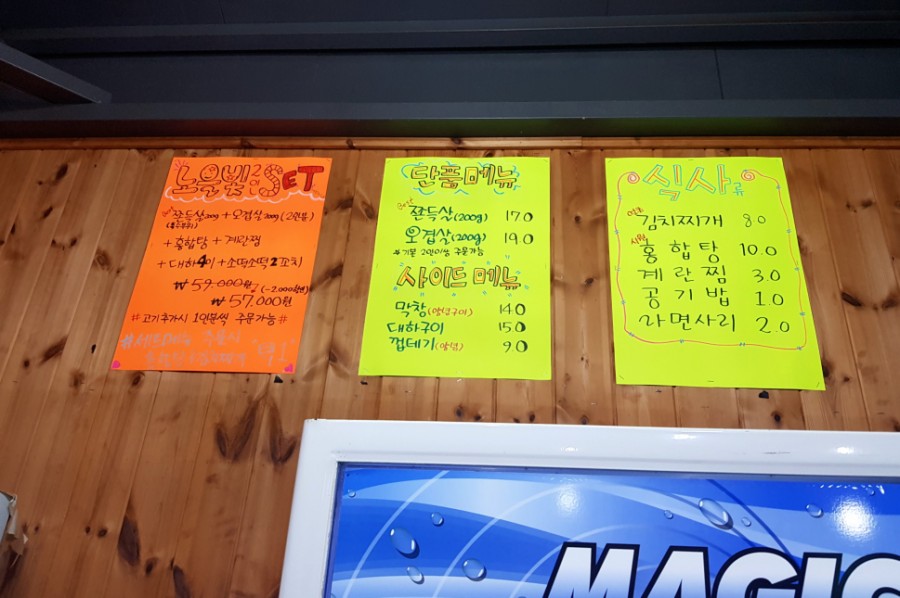 노을빛2호 SET
쫀득살200g + 오겹살200g (2인분)
+ 홍합탕 + 계란찜
+ 대하4미 + 소떡소떡2꼬치
₩ 59.000원
₩ 57.000원
#고기추가시 1인분씩 주문가능#
단품메뉴
쫀득살(200g) 17.0
오겹살(200g) 19.0
#기본 2인이상 주문가능
사이드메뉴
막창 14.0
대하구이 15.0
껍데기 9.0
식사류
김치찌개 8.0
홍합탕 10.0
계란찜 3.0
공기밥 1.0
라면사리 2.0
MAGIC